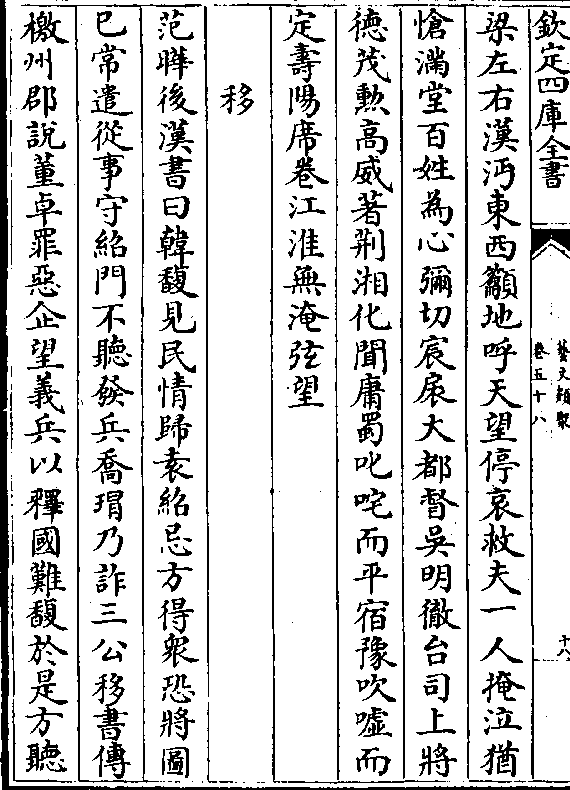 欽定四庫全書
藝文類聚
卷五十八
十八
梁左右漢沔東西籲地呼天望停哀救夫一人掩泣猶
愴滿堂百姓為心彌切宸扆大都督吳明徹台司上將
德茂勲高威著荆湘化聞庸蜀叱咤而平宿豫吹噓而
定壽陽席卷江淮無淹弦望
移
范曄後漢書曰韓馥見民情歸袁紹忌方得衆恐將圖
已常遣從事守紹門不聽發兵喬瑁乃詐三公移書傳
檄州郡說董卓罪惡企望義兵以釋國難馥於是方聽